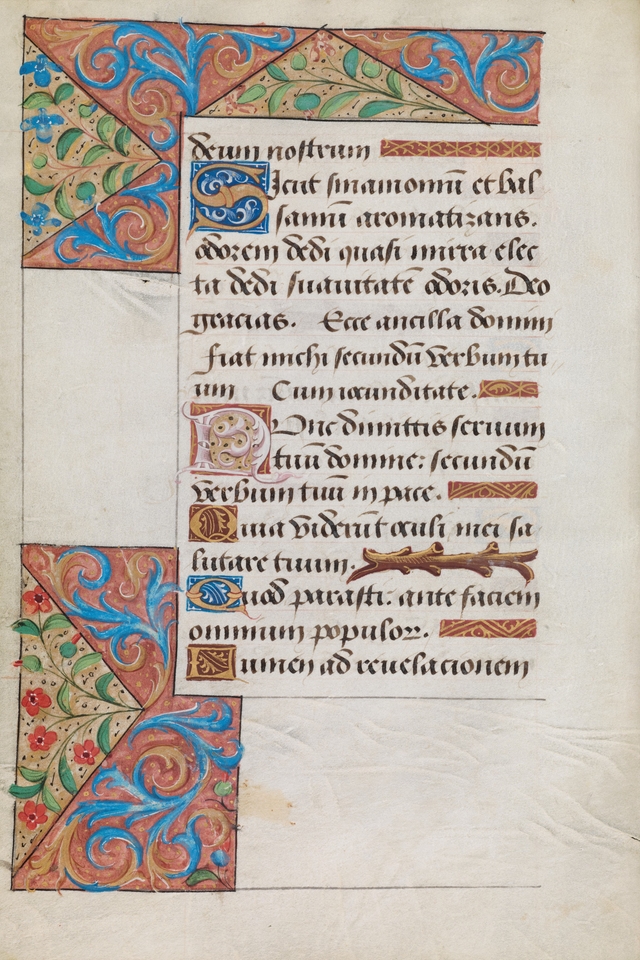 deum nostrum
Sicut sinamomū et bal
samū aromatizans.
odorem dedi quasi mirra elec
ta dedi suauitatē odoris. Deo
gracias. Ecce ancilla domini
fiat michi secundū verbum tu
um Cum iocunditate.
Nunc dimittis seruum
tuū domine: secundū
verbum tuū in pace.
Quia viderūt oculi mei sa
lutare tuum.
Quod parasti: ante faciem
omnium populoꝝ.
Lumen ad reuelacionem